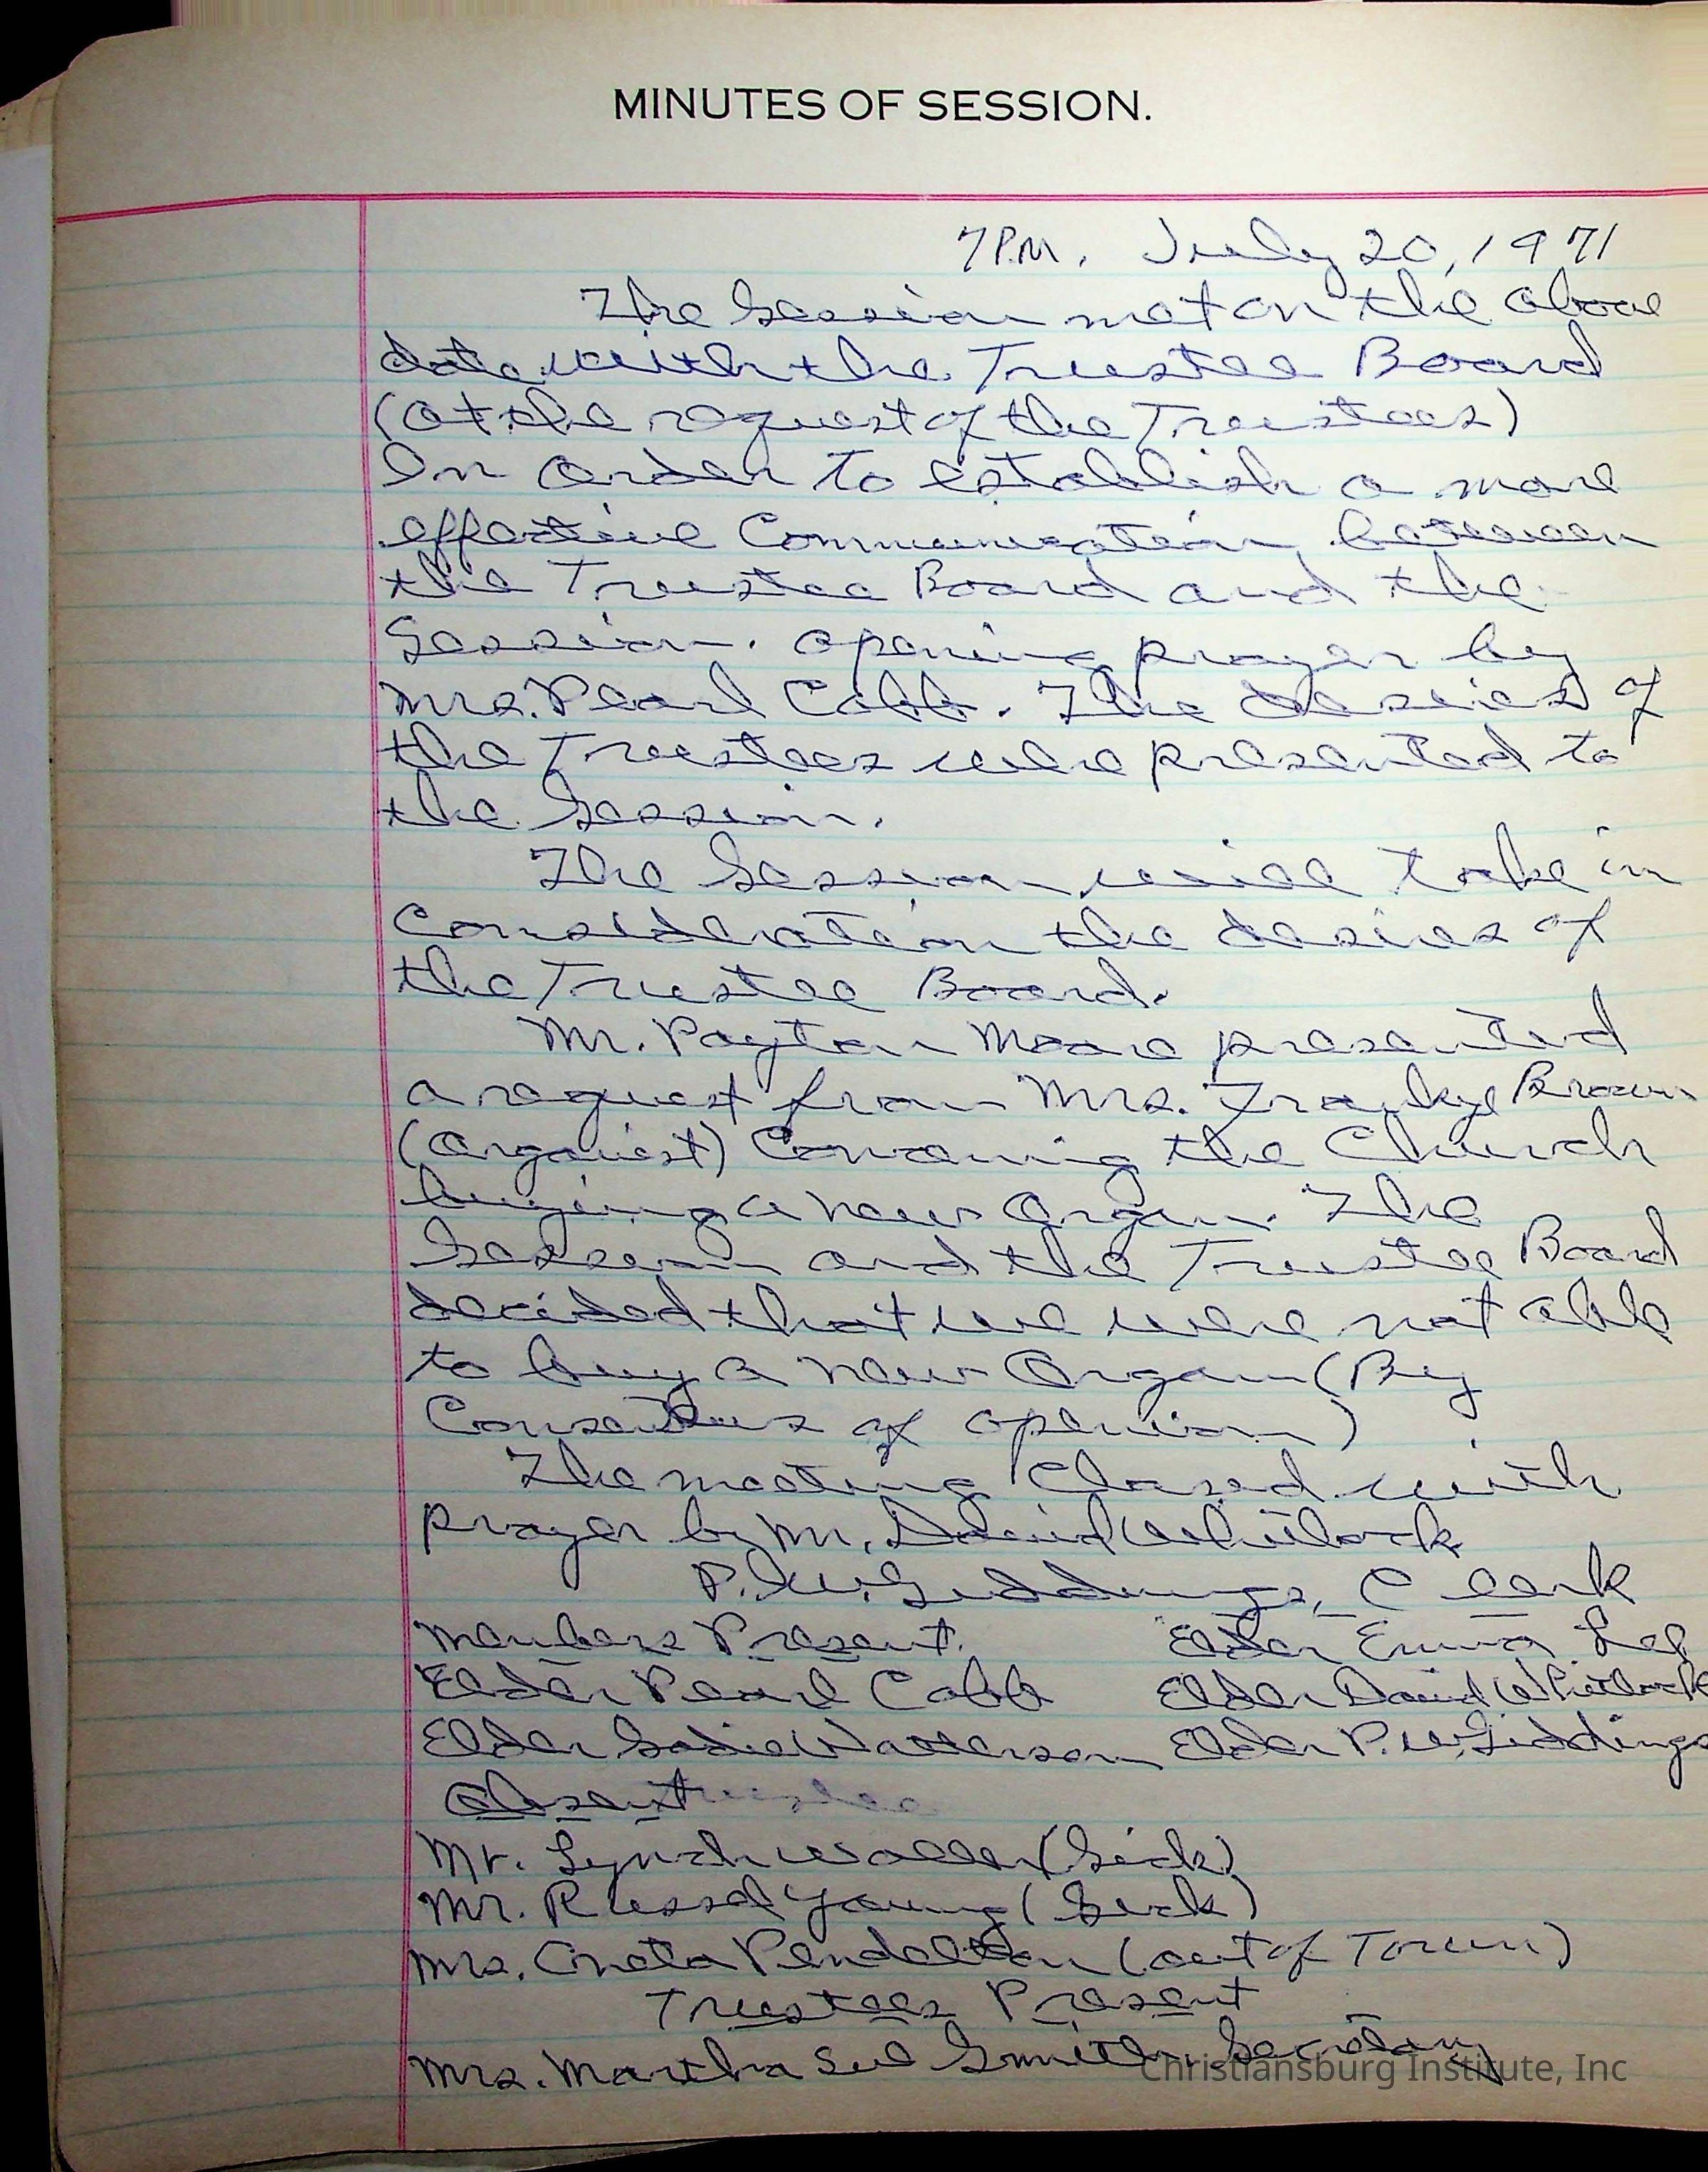 MINUTES OF SESSION.
7 P.M. July 20, 1971
The Session met on the above
date with the Trustee Board
(at the request of the Trustees)
In order to establish a more
effective Communication between
the Trustee Board and the
Session. opening prayer by
Mrs. Pearl Cobb. The desires of
the Trustees were presented to
the Session.
The Session will take in
Consideration the desires of
the Trustee Board.
Mr. Payton Moore presented
a request from Mrs. Frankye Brown
(organist) Concerning the Church
buying a new organ. The
Session and the Trustee Board
decided that we were not able
to buy a new Organ (By
Consensus of openion)
The meeting Closed with
prayer by Mr. David Whitlock
P. W. Giddings, Clerk
Members Present. Elder Emma Lee
Elder Pearl Cobb Elder David Whitlock
Elder Sadie Watterson Elder P. W. Giddings
Absent
Mr. Lynch Waller (Sick)
Mr. Russel Young (Sick)
Mrs. Oneta Pendelton (out of Town)
Trustees Present
Mrs. Martha Sue Smith, Secretary
Christiansburg Institute, Inc